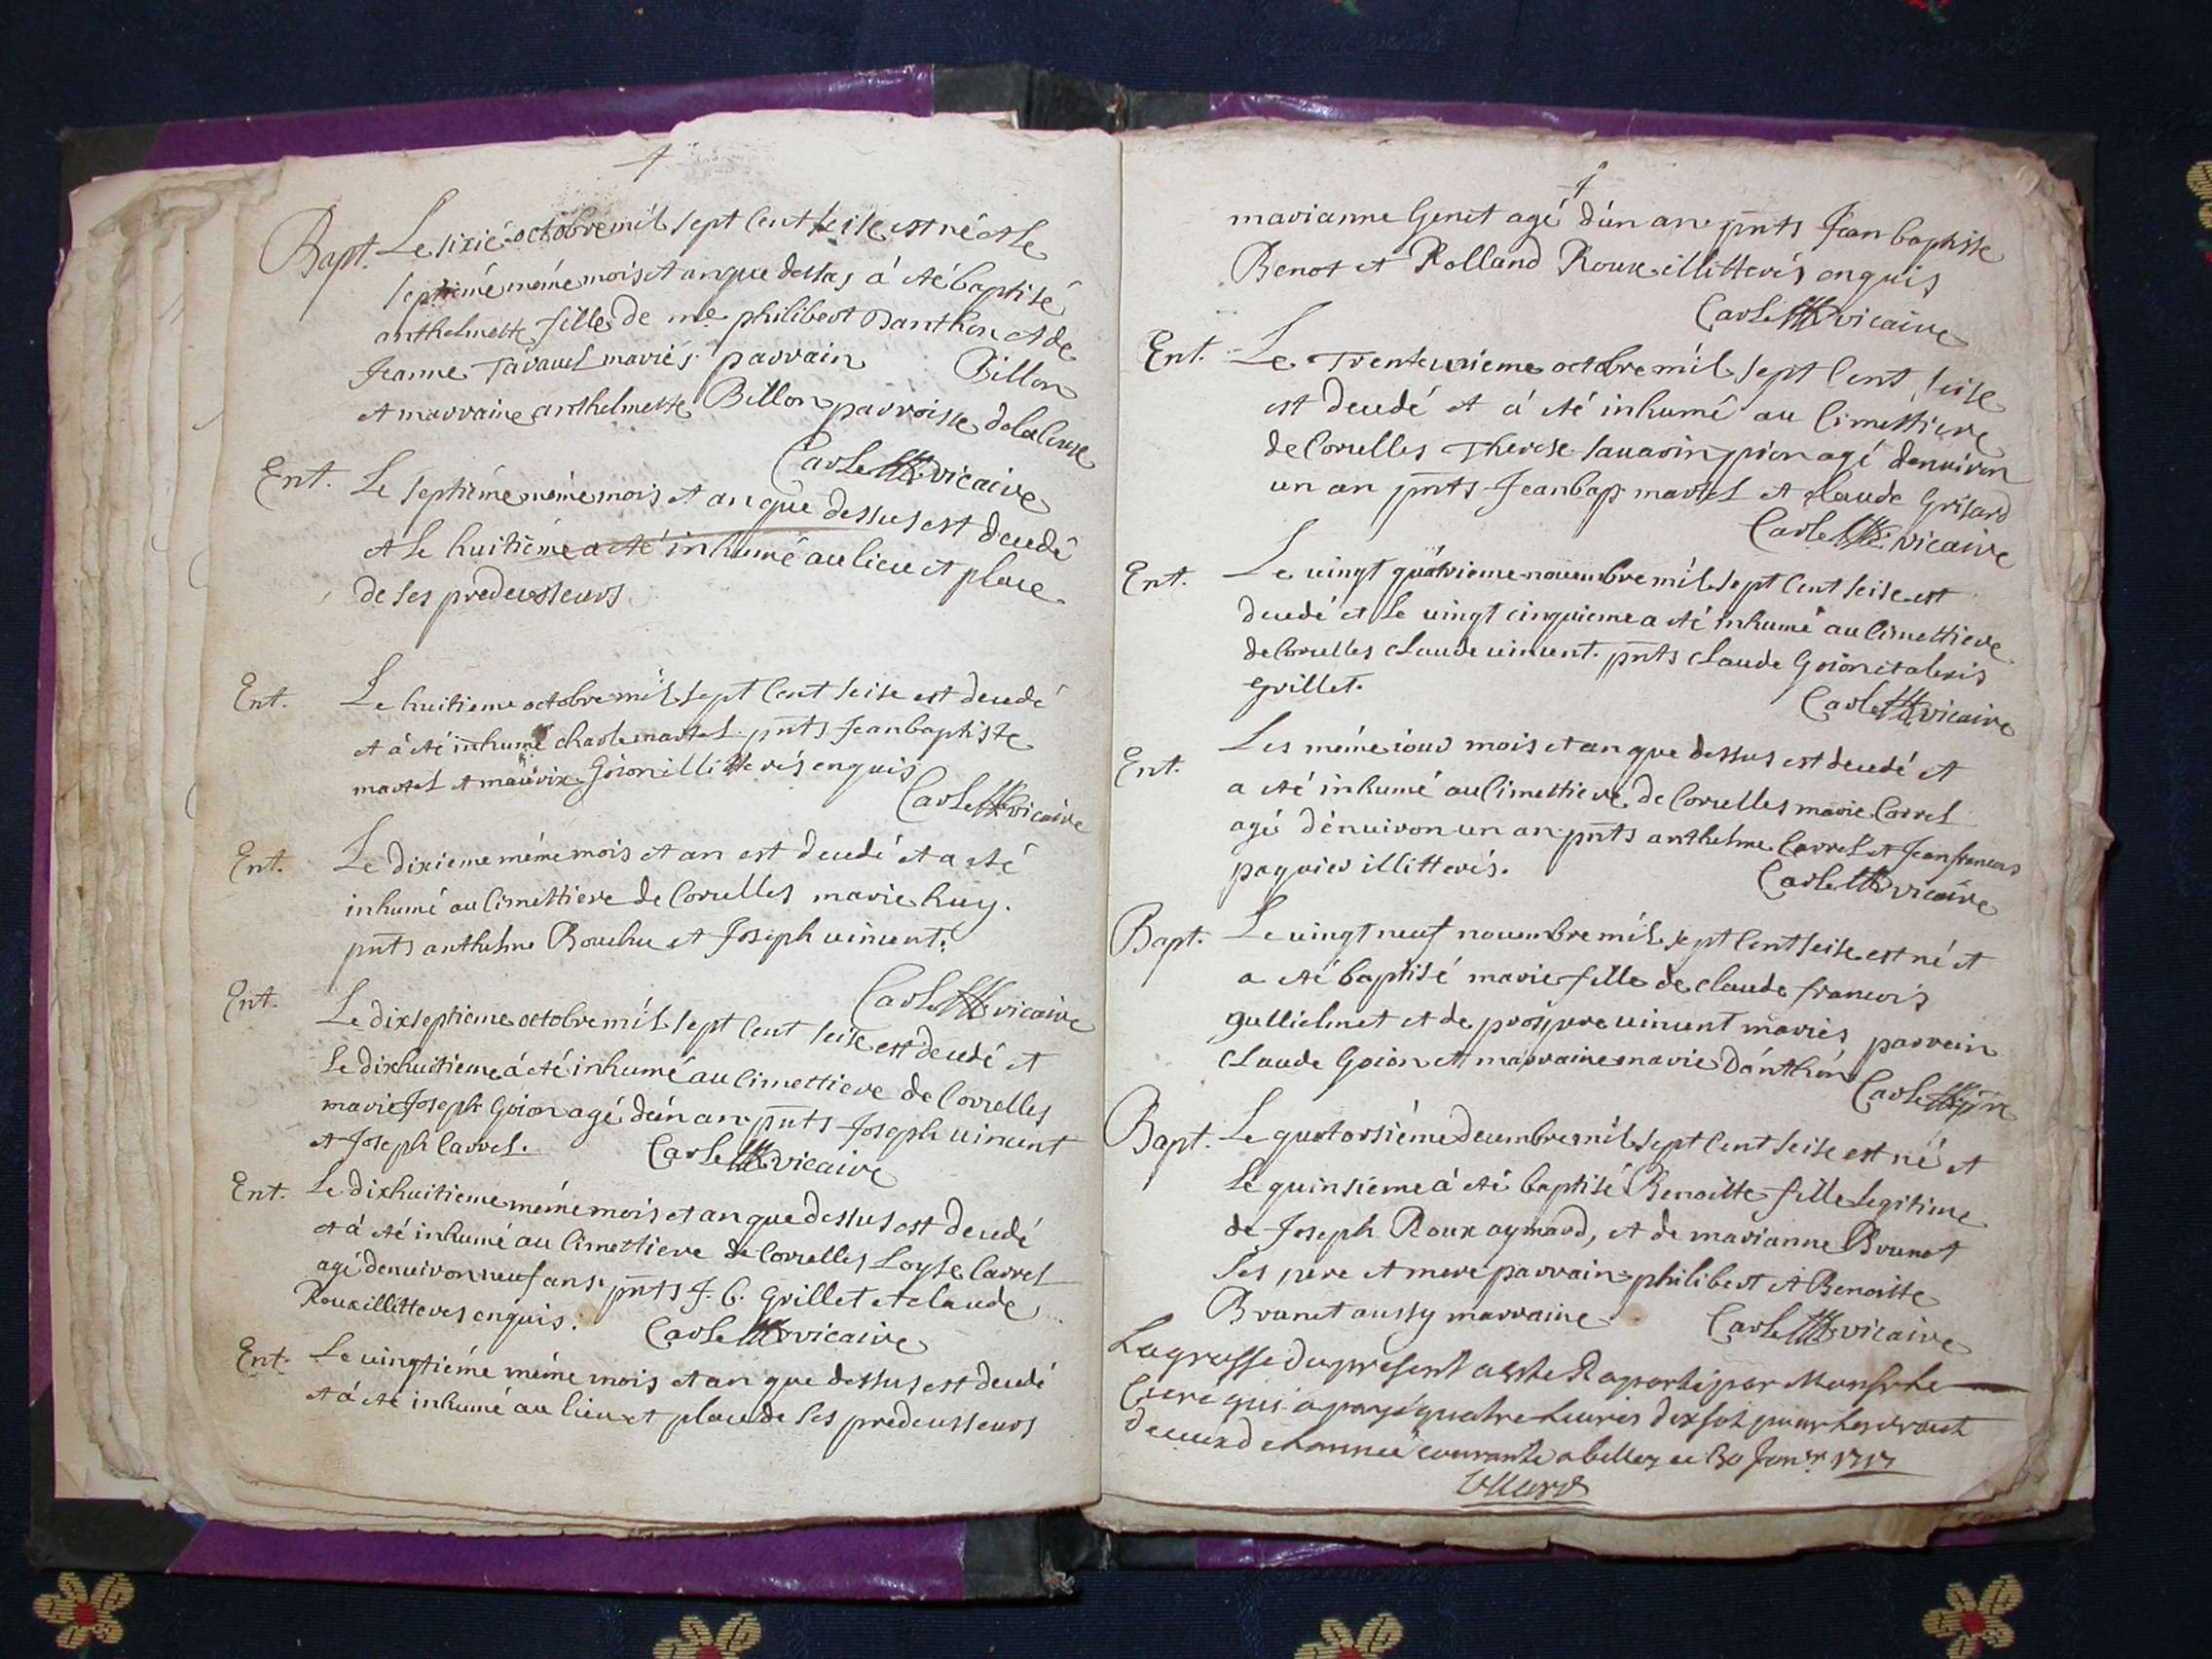 Bapt. Le sixié octobre mil sept cent seise est né et le
septiémé méme mois et an que dessus á eté baptisé
anthelmette fille de me philibert Danthon et de
Jeanne mariés parrain Billon
et marraine anthelmette Billon parroisse de
Carle vicaire
Ent. Le septiéme méme mois et an que dessus est decedé
et le huitiéme a eté inhumé au lieu et place
de ses predecesseurs
Ent. Le huitieme octobre mil sept cent seise est decedé
et á eté inhumé charle martel pnts Jean baptiste
martel et Goion illitterés enquis
Carle vicaire
Ent. Le dixieme méme mois et an est decedé et a eté
inhumé au cimettiere de Corcelles marie huy.
pnts anthelme Bouchu et Joseph vincent.
Carle vicaire
Ent. Le dixseptieme octobre mil sept cent seise est decedé et
le dixhuitieme á eté inhumé au cimettiere de Corcelles
marie Joseph Goion agé d'un an pnts Joseph vincent
et Joseph Carrel.
Carle vicaire
Ent. Le dixhuitieme méme mois et an que dessus est decedé
et á eté inhumé au cimettiere de Corcelles Loyse Carrel
agé denviron neuf ans. pnts J. B. Grillet et claude
Roux illitteres enquis.
Carle vicaire
Ent. Le vingtiéme méme mois et an que dessus est decedé
et á eté inhumé au lieu et place de ses predecesseurs
marianne Genet agé d'un an pnts Jean baptiste
Benot et Rolland Roux illitterés enquis
Carle vicaire
Ent. Le Trente unieme octobre mil sept cent seise
est decedé et á eté inhumé au cimettiere
de Corcelles Therese agé denviron
un an pnts Jean bap martel et claude Grisard
Carle vicaire
Ent. Le vingt quátrieme novembre mil sept cent seise est
decedé et le vingt cinquieme a eté inhumé au cimettiere
de Corcelles claude vincent. pnts claude Goion et alexis
grillet.
Carle vicaire
Ent. Les méme iour mois et an que dessus est decedé et
a eté inhumé au cimettiere de Corcelles marie Carrel
agé dénviron un an. pnts anthelme Carrel et Jean francois
paquier illitterés.
Carle vicaire
Bapt. Le vingt neuf novembre mil sept cent seise est né et
a eté baptisé marie fille de claude francois
gullielmet et de prospere vincent mariés parrein
claude Goion et marraine marie Dánthon
Carle
Bapt. Le quatorsiéme decembre mil sept cent seise est né et
le quinsiéme á eté baptisé Benoitte fille legitime
de Joseph Roux aymard, et de marianne Brunet
ses pere et mere parrain philibert et Benoitte
Brunet aussy marraine
Carle vicaire
La grosse du present a esté Raporté par Monsr le
Curé qui a payé quatre livres dix sols pour les droits
de l'année courante a belley ce 30 Janer 1717